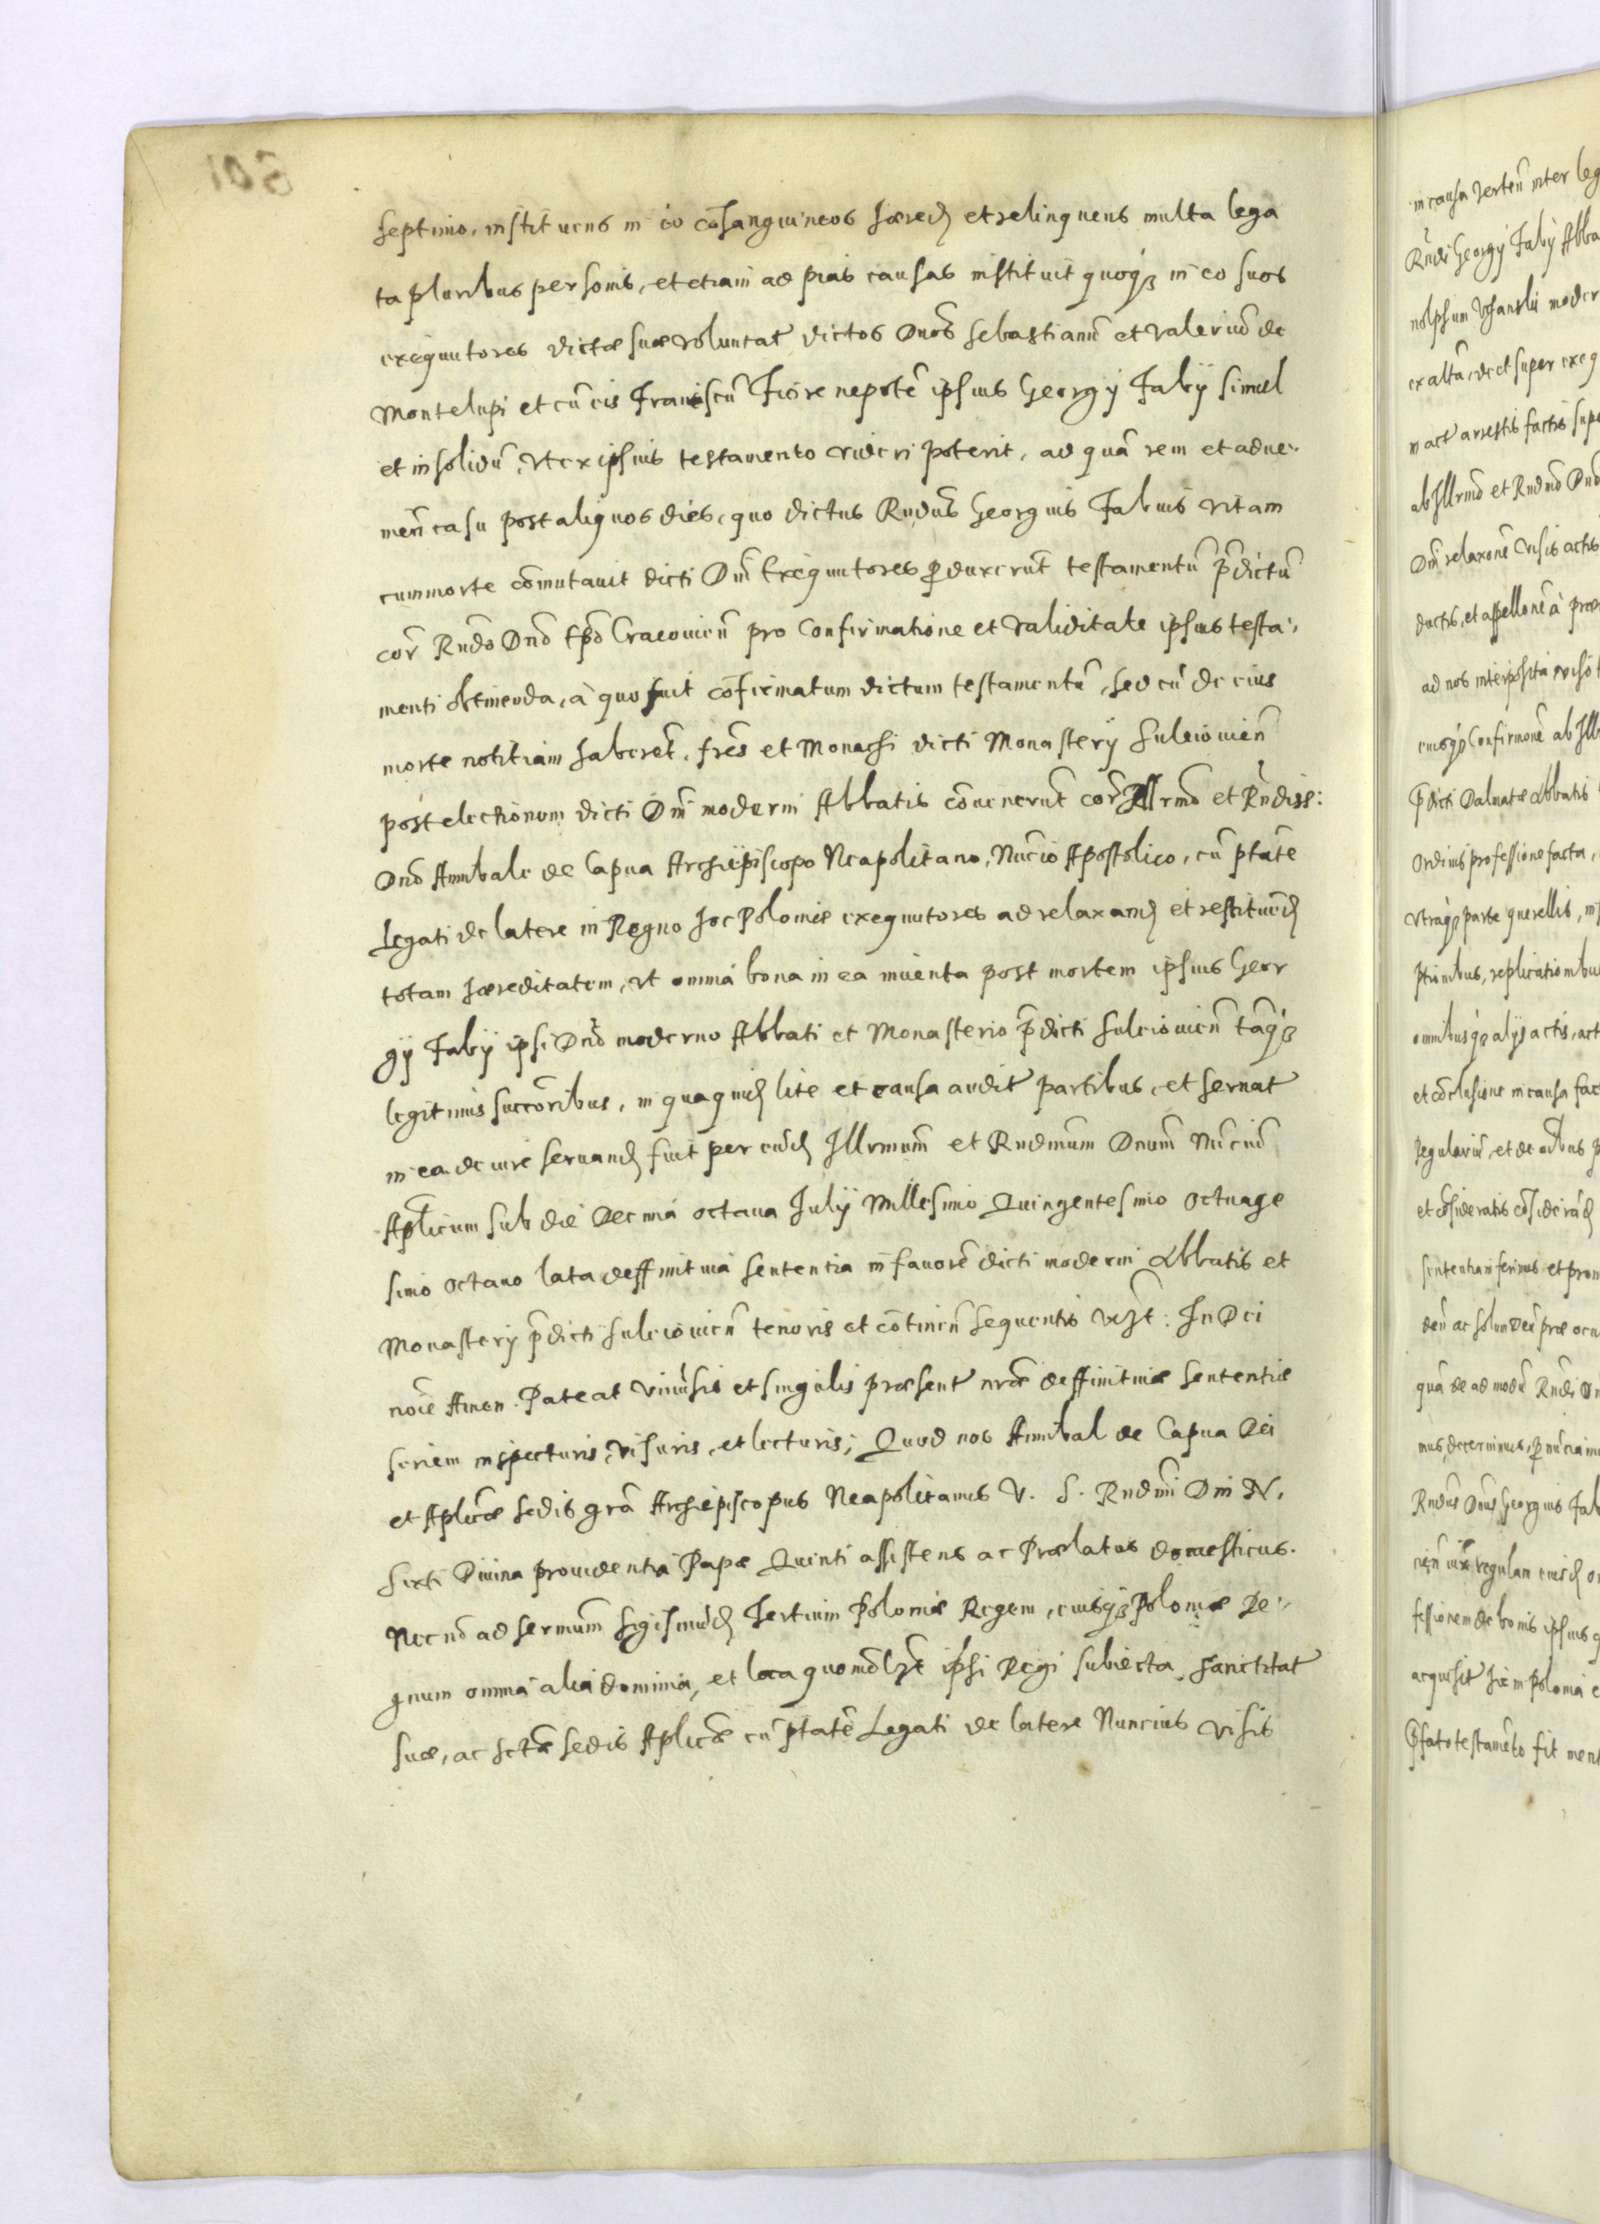 septimo, instituens in eo cōsanguineos hæred et relinquens multa lega
ta pluribus personis, et etiam ad pias causas instituit quoqȝ in eo suos
exequutores dictæ suæ voluntat dictos Dnos Sebastianū et Valeriū de
Montelupi et cū eis Franciscū Fiore nepotē ipsius Georgÿ Fabÿ simul
et insolidū, vt ex ipsius testamento videri poterit, ad quā rem et adue-
nien̄ casu post aliquos dies, quo dictus Rndus Georgius Fabius vitam
cum morte cōmutauit dicti Dn̄i Exequutores ꝓduxerūt testamentū p̄dictū
cor̄ Rndo Dn̄o Ep̄o Cracouien̄ pro Confirmatione et validitate ipsius testa-
menti obtinenda, à quo fuit cōfirmatum dictum testamentū, sed cū de eius
morte notitiam haberēt, fr̄es et Monachi dicti Monasterÿ Suleiouien̄
post electionem dicti Dn̄i moderni Abbatis cōuenerūt cor̄ Illrmo et Rndiss:
Dn̄o Annibale de Capua Archiepiscopo Neapolitano, Nūcio Apostolico, cū ptāte
Legati de latere in Regno hoc Poloniæ exequutores ad relaxand et restituēd
totam hæreditatem, vt omnia bona in ea inuenta post mortem ipsius Geor
gÿ Fabÿ ipsi Dn̄o moderno Abbati et Monasterio p̄dicti Suleiouien̄ tāqȝ
legitimis succōribus, in quaquid lite et causa audit partibus, et seruat
in ea de iure seruand fuit per eūd Illrmum et Rndmum Dnum Nūciū
Aplicum sub die Decima octaua Julÿ Millesimo Quingentesimo octuage
simo octauo lata deffinitiua sententia in fauorē dicti moderni Abbatis et
Monasterÿ p̄dicti Suleiouien̄ tenoris et cōtinen̄ sequentis vȝt: In Dei
noīe Amen. Pateat vniuersis et singulis præsent nr̄æ deffinitiuæ sententiæ
seriem inspecturis, visuris, et lecturis; Quod nos Annibal de Capua Dei
et Aplicæ Sedis grā Archiepiscopus Neapolitanus V. S. Rndmi Dni N.
Sixti Diuina prouidentia Papæ Quinti assistens ac Prælatus domesticus.
Necnō ad Sermum Sigismūd Tertium Poloniæ Regem, eiusqȝ Poloniæ Re-
gnum omnia alia dominia, et loca quomōlȝt ipsi Regi subiecta Sanctitat
suæ, ac Sctæ Sedis Aplicæ cū ptātē Legati de latere Nuncius visis
in causa verten̄ inter leg
Rndi Georgÿ Fabÿ Abba
ex alta, de et super exeq
in act arrestis factis sup
ab Illrmo et Rndmo Dnō
Dn̄i relaxonē visis actis
ductis, et appellonē à præ
ad nos interposita, viso t
eiusqȝ Confirmonē ab Ill
p̄dicti Dalmatæ Abbatis
Ordinis professione facta,
vtraqȝ parte querellis, in
ptionibus, replicationibu
omnibusqȝ alÿs actis, act
et cōclusione in causa fac
Regulariū, et de
et cōsideratis cōsiderād
sententiam ferimus et pron
den̄ ac solum Deū præ ocu
qua de ad modū Rndi Dn
mus, decernimus, ꝓnūciamu
Rndus Dnus Georgius Fab
cien̄ iux regulam eiusd or
fessionem de bonis ipsius q
acquisit hic in Polonia e
p̄fato testamēto fit ment
501